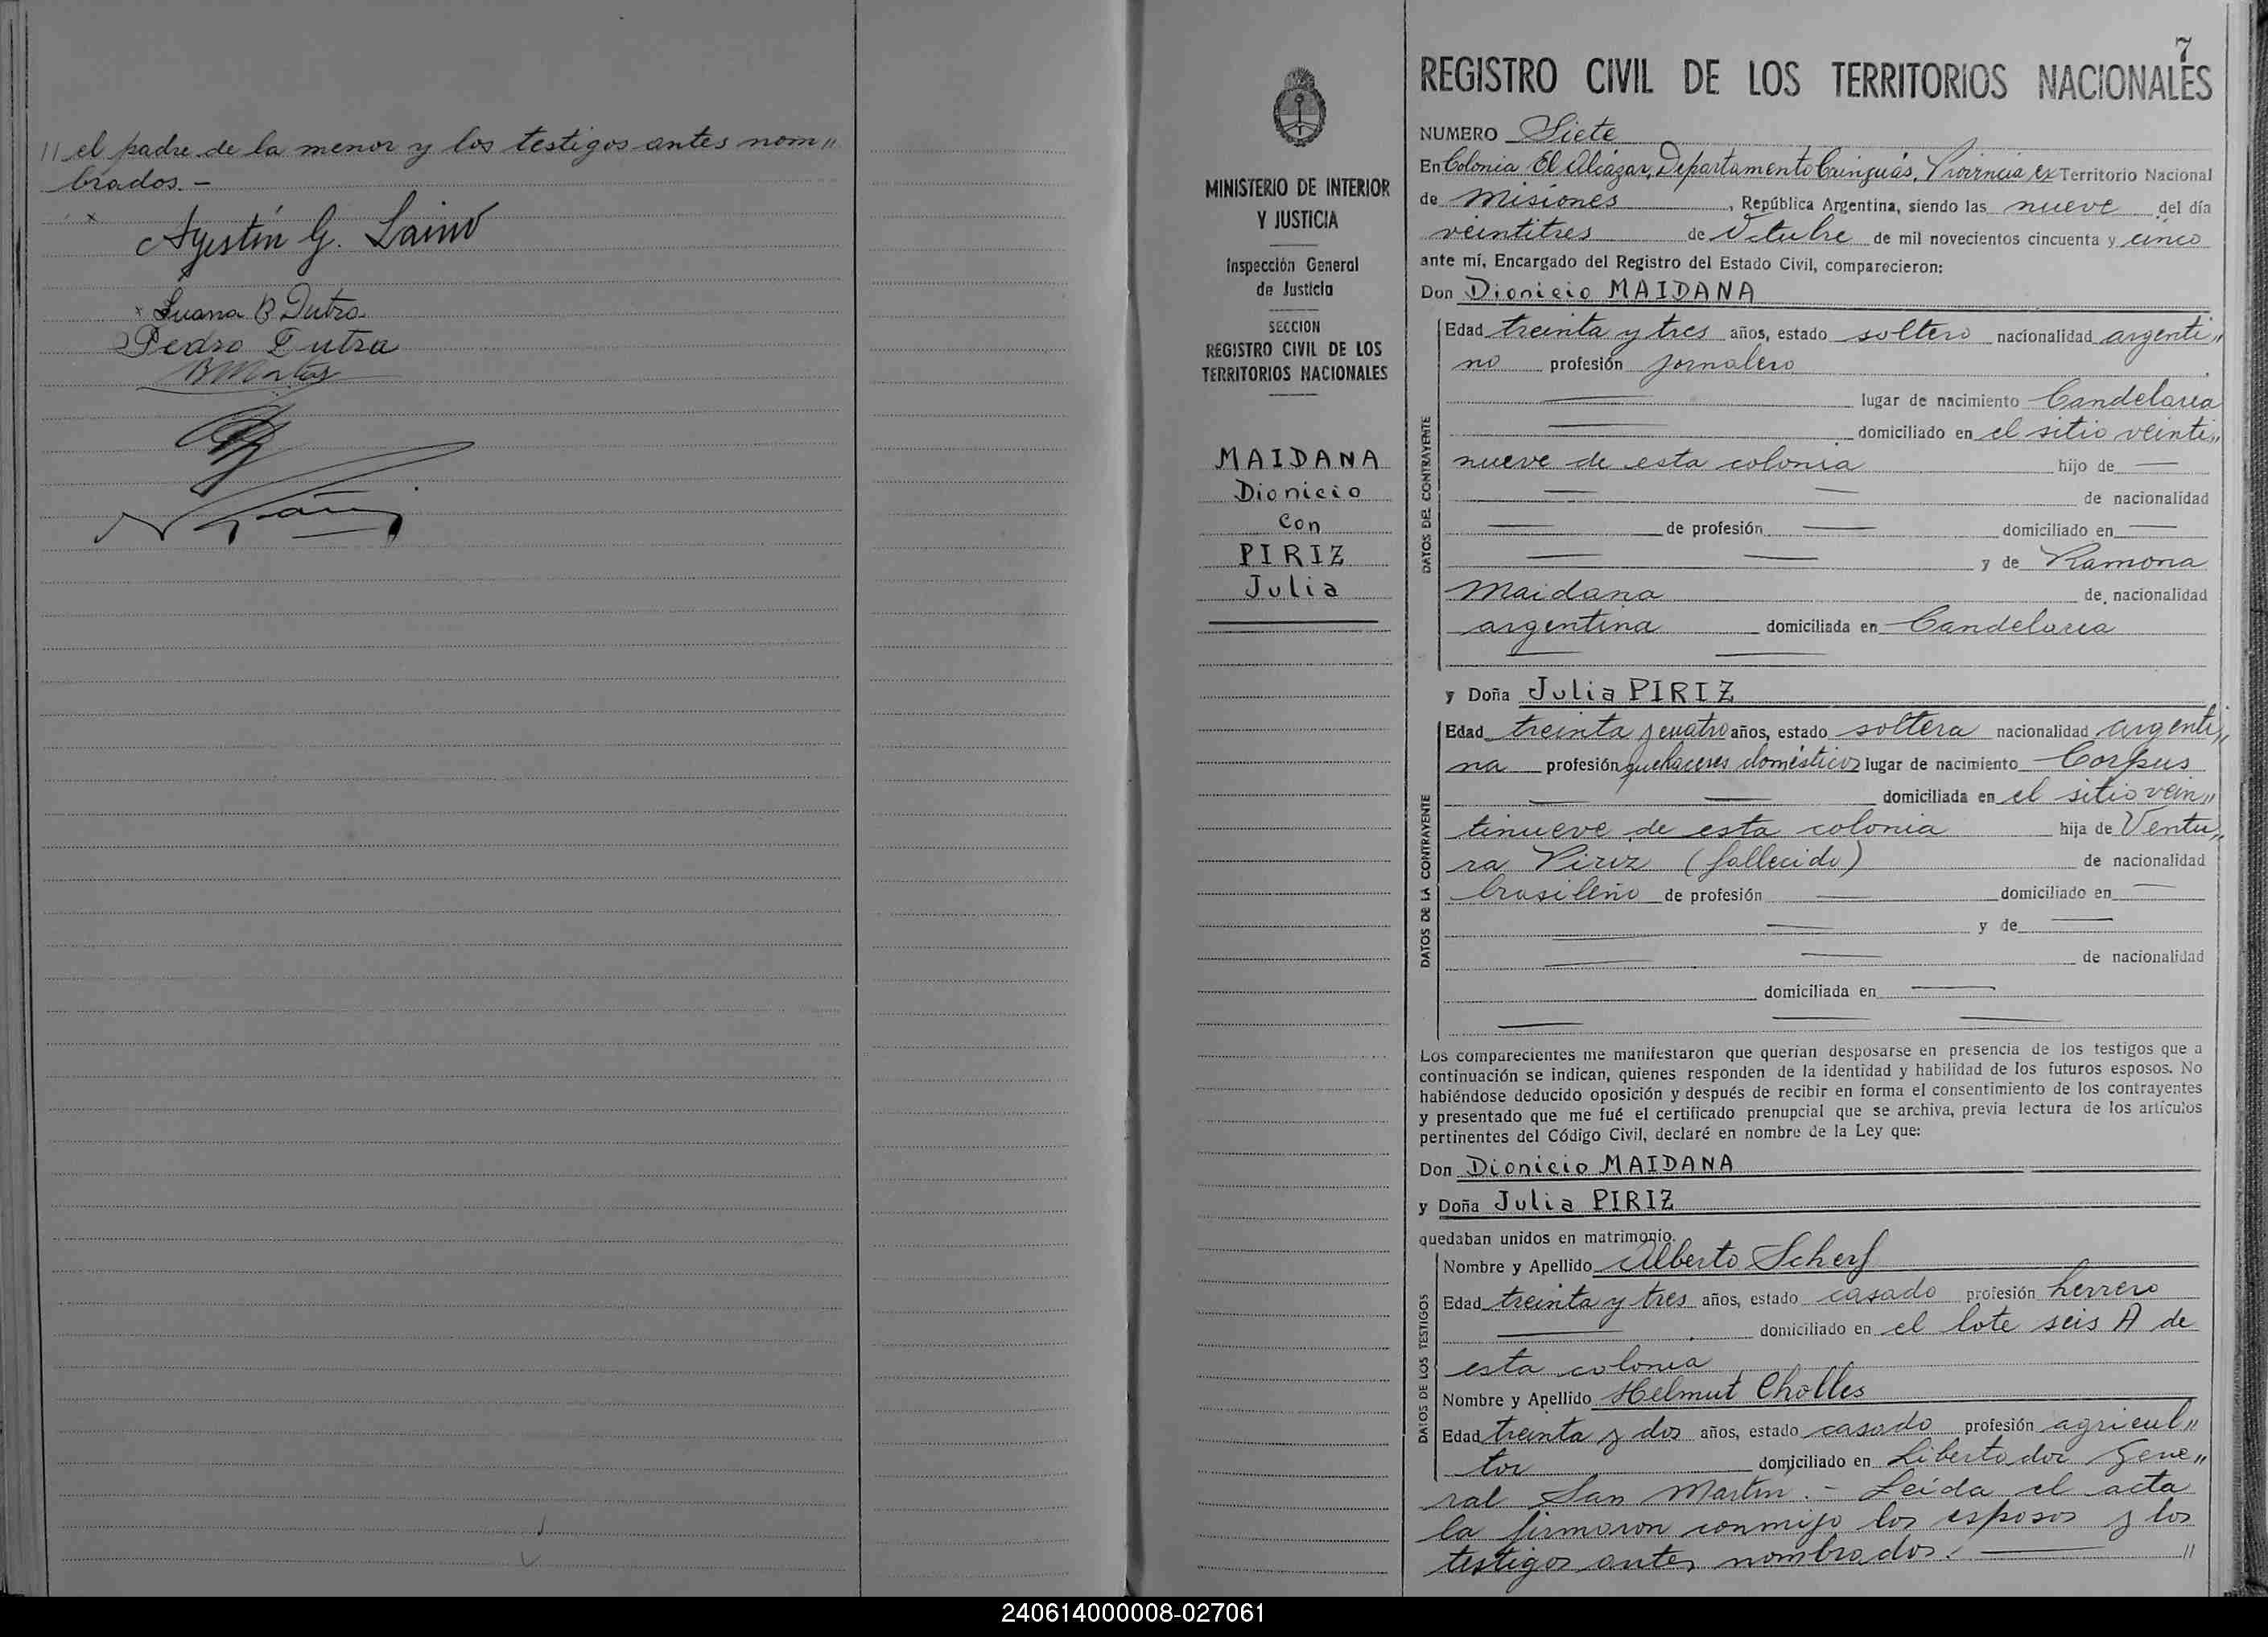 // el padre de la menor y los testigos antes nom//
brados.-
Agustín G.
Juana B Dutra
Pedro Dutra
7
REGISTRO CIVIL DE LOS TERRITORIOS NACIONALES
MINISTERIO DE INTERIOR
Y JUSTICIA
Inspección General
de Justicia
SECCION
REGISTRO CIVIL DE LOS
TERRITORIOS NACIONALES
MAIDANA
Dionicio
Con
PIRIZ
Julia
NUMERO Siete
En Colonia El Alcázar, Departamento Cainguás, Provincia ex Territorio Nacional
de Misiones, República Argentina, siendo las nueve del día
veintitres de Octubre de mil novecientos cincuenta y cinco
ante mí, Encargado del Registro del Estado Civil, comparecieron:
Don Dionicio MAIDANA
DATOS DEL CONTRAYENTE
Edad treinta y tres años, estado soltero nacionalidad argenti//
no profesión jornalero
lugar de nacimiento Candelaria
domiciliado en el sitio veinti//
nueve de esta colonia hijo de —
— — de nacionalidad
— de profesión — domiciliado en —
— — y de Ramona
Maidana de nacionalidad
argentina domiciliada en Candelaria
y Doña Julia PIRIZ
DATOS DE LA CONTRAYENTE
Edad treinta y cuatro años, estado soltera nacionalidad argenti//
na profesión quehaceres domésticos lugar de nacimiento Corpus
— — domiciliada en el sitio vein//
tinueve de esta colonia hija de Ventu//
ra Piriz (fallecido) de nacionalidad
brasileño de profesión — domiciliado en —
— — y de —
— — de nacionalidad
domiciliada en —
— — —
Los comparecientes me manifestaron que querían desposarse en presencia de los testigos que a
continuación se indican, quienes responden de la identidad y habilidad de los futuros esposos. No
habiéndose deducido oposición y después de recibir en forma el consentimiento de los contrayentes
y presentado que me fué el certificado prenupcial que se archiva, previa lectura de los artículos
pertinentes del Código Civil, declaré en nombre de la Ley que:
Don Dionicio MAIDANA
y Doña Julia PIRIZ
quedaban unidos en matrimonio.
DATOS DE LOS TESTIGOS
Nombre y Apellido Alberto Scherf
Edad treinta y tres años, estado casado profesión herrero
— domiciliado en el lote seis A de
esta colonia
Nombre y Apellido Helmut Cholles
Edad treinta y dos años, estado casado profesión agricul//
tor domiciliado en Libertador Gene//
ral San Martín.- Leída el acta
la firmaron conmigo los esposos y los
testigos antes nombrados. — //
240614000008-027061